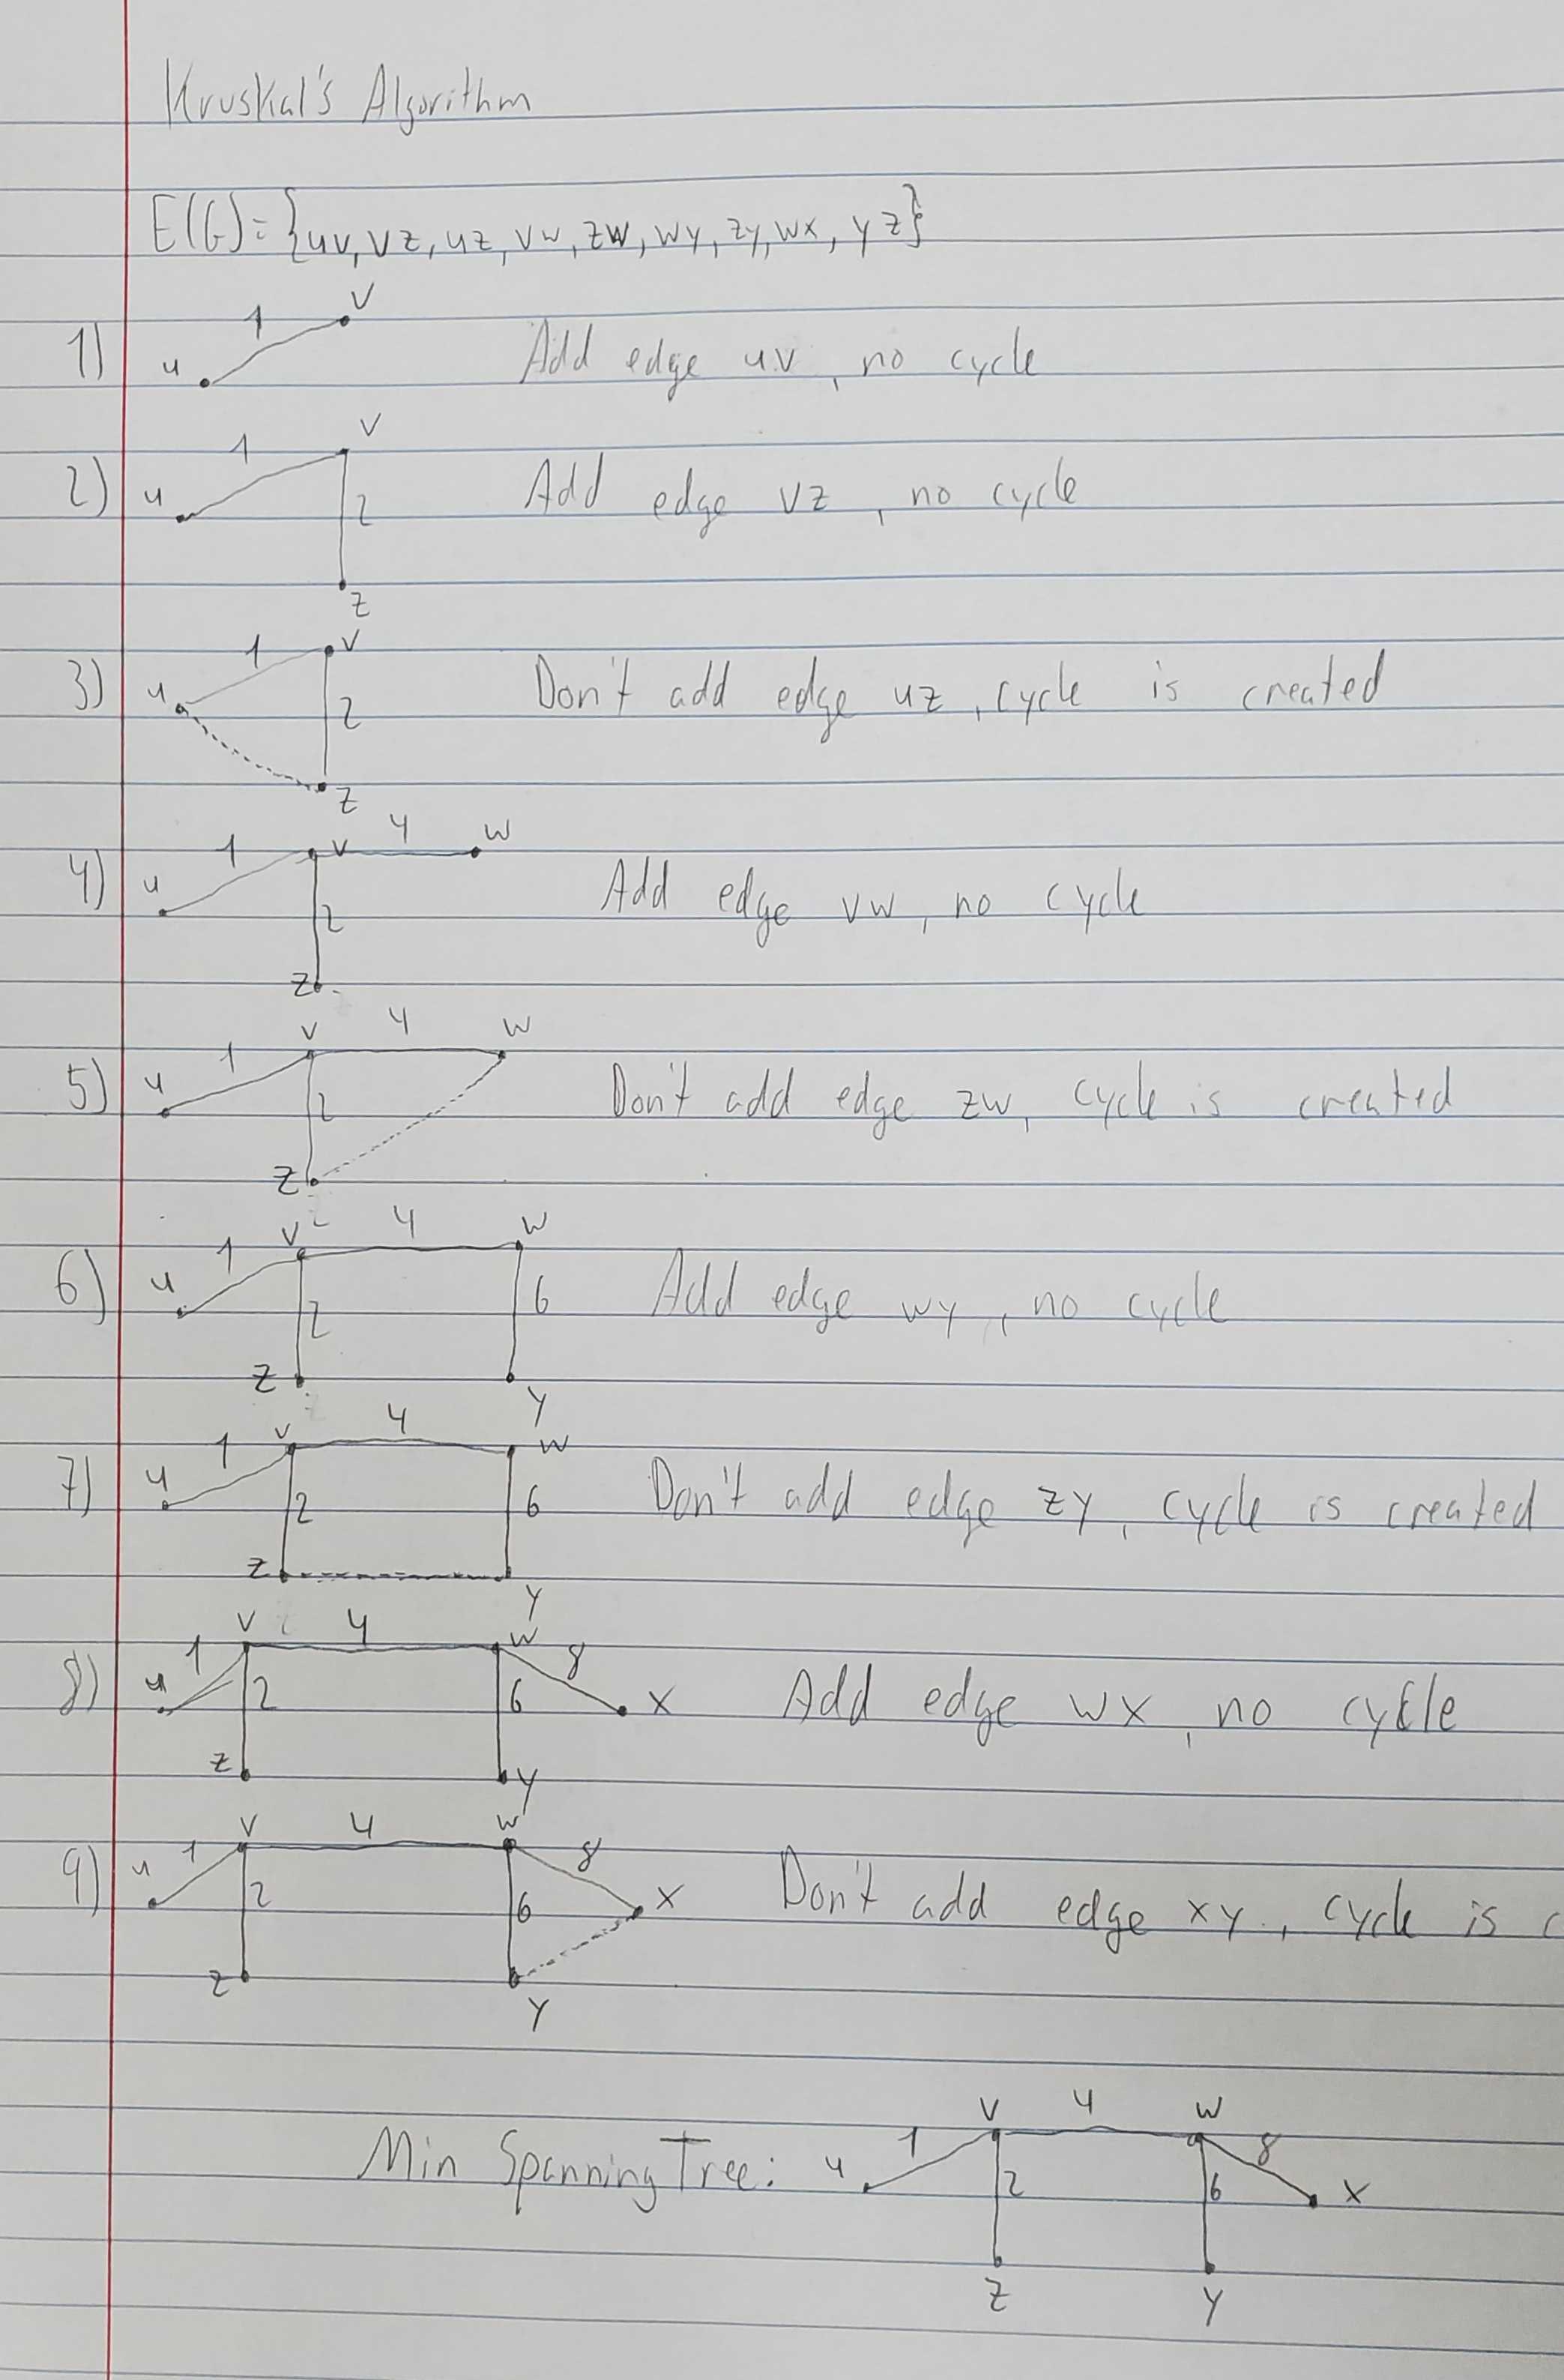 Kruskal's Algorithm
E(G)={uv, vz, uz, vw, zw, wy, zy, wx, yz}
1) u 1 v Add edge uv, no cycle
2) u 1 v 2 z Add edge vz, no cycle
3) u 1 v 2 z Don't add edge uz, cycle is created
4) u 1 v 4 w 2 z Add edge vw, no cycle
5) u 1 v 4 w 2 z Don't add edge zw, cycle is created
6) u 1 v 4 w 2 6 z y Add edge wy, no cycle
7) u 1 v 4 w 2 6 z y Don't add edge zy, cycle is created
8) u 1 v 4 w 8 2 6 x z y Add edge wx, no cycle
9) u 1 v 4 w 8 2 6 x z y Don't add edge xy, cycle is c
Min Spanning Tree: u 1 v 4 w 8 2 6 x z y